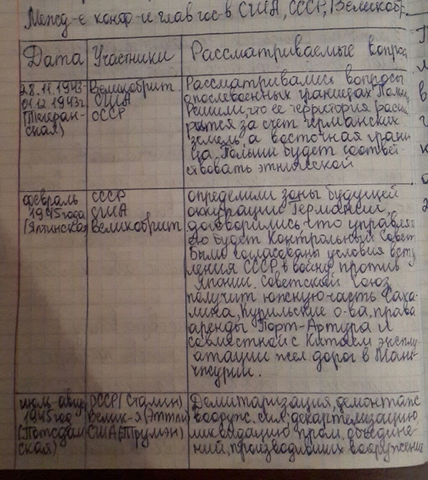 Межд-е конф-и глав гос-в США, СССР, Великобр.
Дата Участники Рассматриваемые вопро
28.11.1943-
01.12.1943г.
(Тегеран-
ская)
Великобрит
США
СССР
Рассматривались вопросы
о послевоенных границах Польши,
решили, что её территория расши
рится за счет германских
земель, а восточная грани
ца Польши будет соответ
ствовать этнической
февраль
1945 года
(Ялтинская
СССР
США
Великобрит.
определили зоны будущей
оккупации Германии,
договорились что управля
ею будет Контрольный Совет
Были согласованы условия всту
пления СССР в войну против
Японии. Советский Союз
получит южную часть Саха-
лина, Курильские о-ва, права
аренды Порт-Артура и
совместной с Китаем эксплу
атации жел дорог в Мань-
чжурии.
июль-авгу
1945 год
(Потсдам
ская)
СССР (Сталин)
Велик-я (Эттли
США (Трумэн)
Демилитаризация, демонтаж
вооруж. сил, декартелизацию
ликвидацию пром. объедине-
ний, производивших вооружения